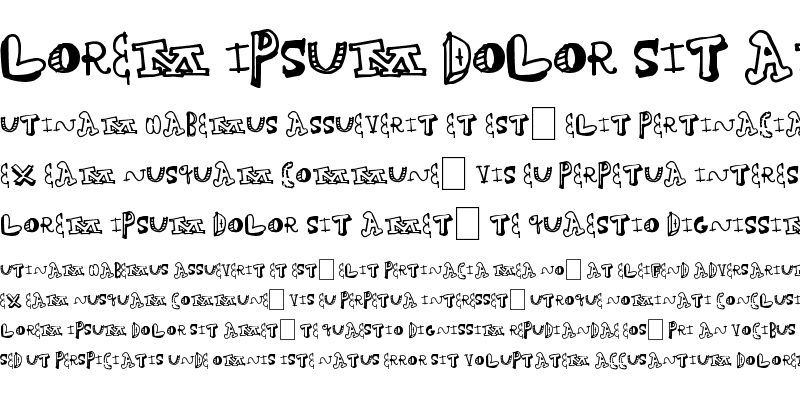 LOREM IPSUM DOLOR SIT A
UTINAM HABEMUS ASSUEVERIT ET EST□ ELIT PERTINACIA
EX EAM NUSQUAM COMMUNE□ VIS EU PERPETUA INTERES
LOREM IPSUM DOLOR SIT AMET□ TE QUAESTIO DIGNISSIM
UTINAM HABEMUS ASSUEVERIT ET EST□ ELIT PERTINACIA MEA NO□ AT ELEIFEND ADVERSARIUM
EX EAM NUSQUAM COMMUNE□ VIS EU PERPETUA INTERESSET□ UTROQUE NOMINATI CONCLUSI
LOREM IPSUM DOLOR SIT AMET□ TE QUAESTIO DIGNISSIM REPUDIANDAE EOS□ PRI AN VOCIBUS
SED UT PERSPICIATIS UNDE OMNIS ISTE NATUS ERROR SIT VOLUPTATEM ACCUSANTIUM DOLOR